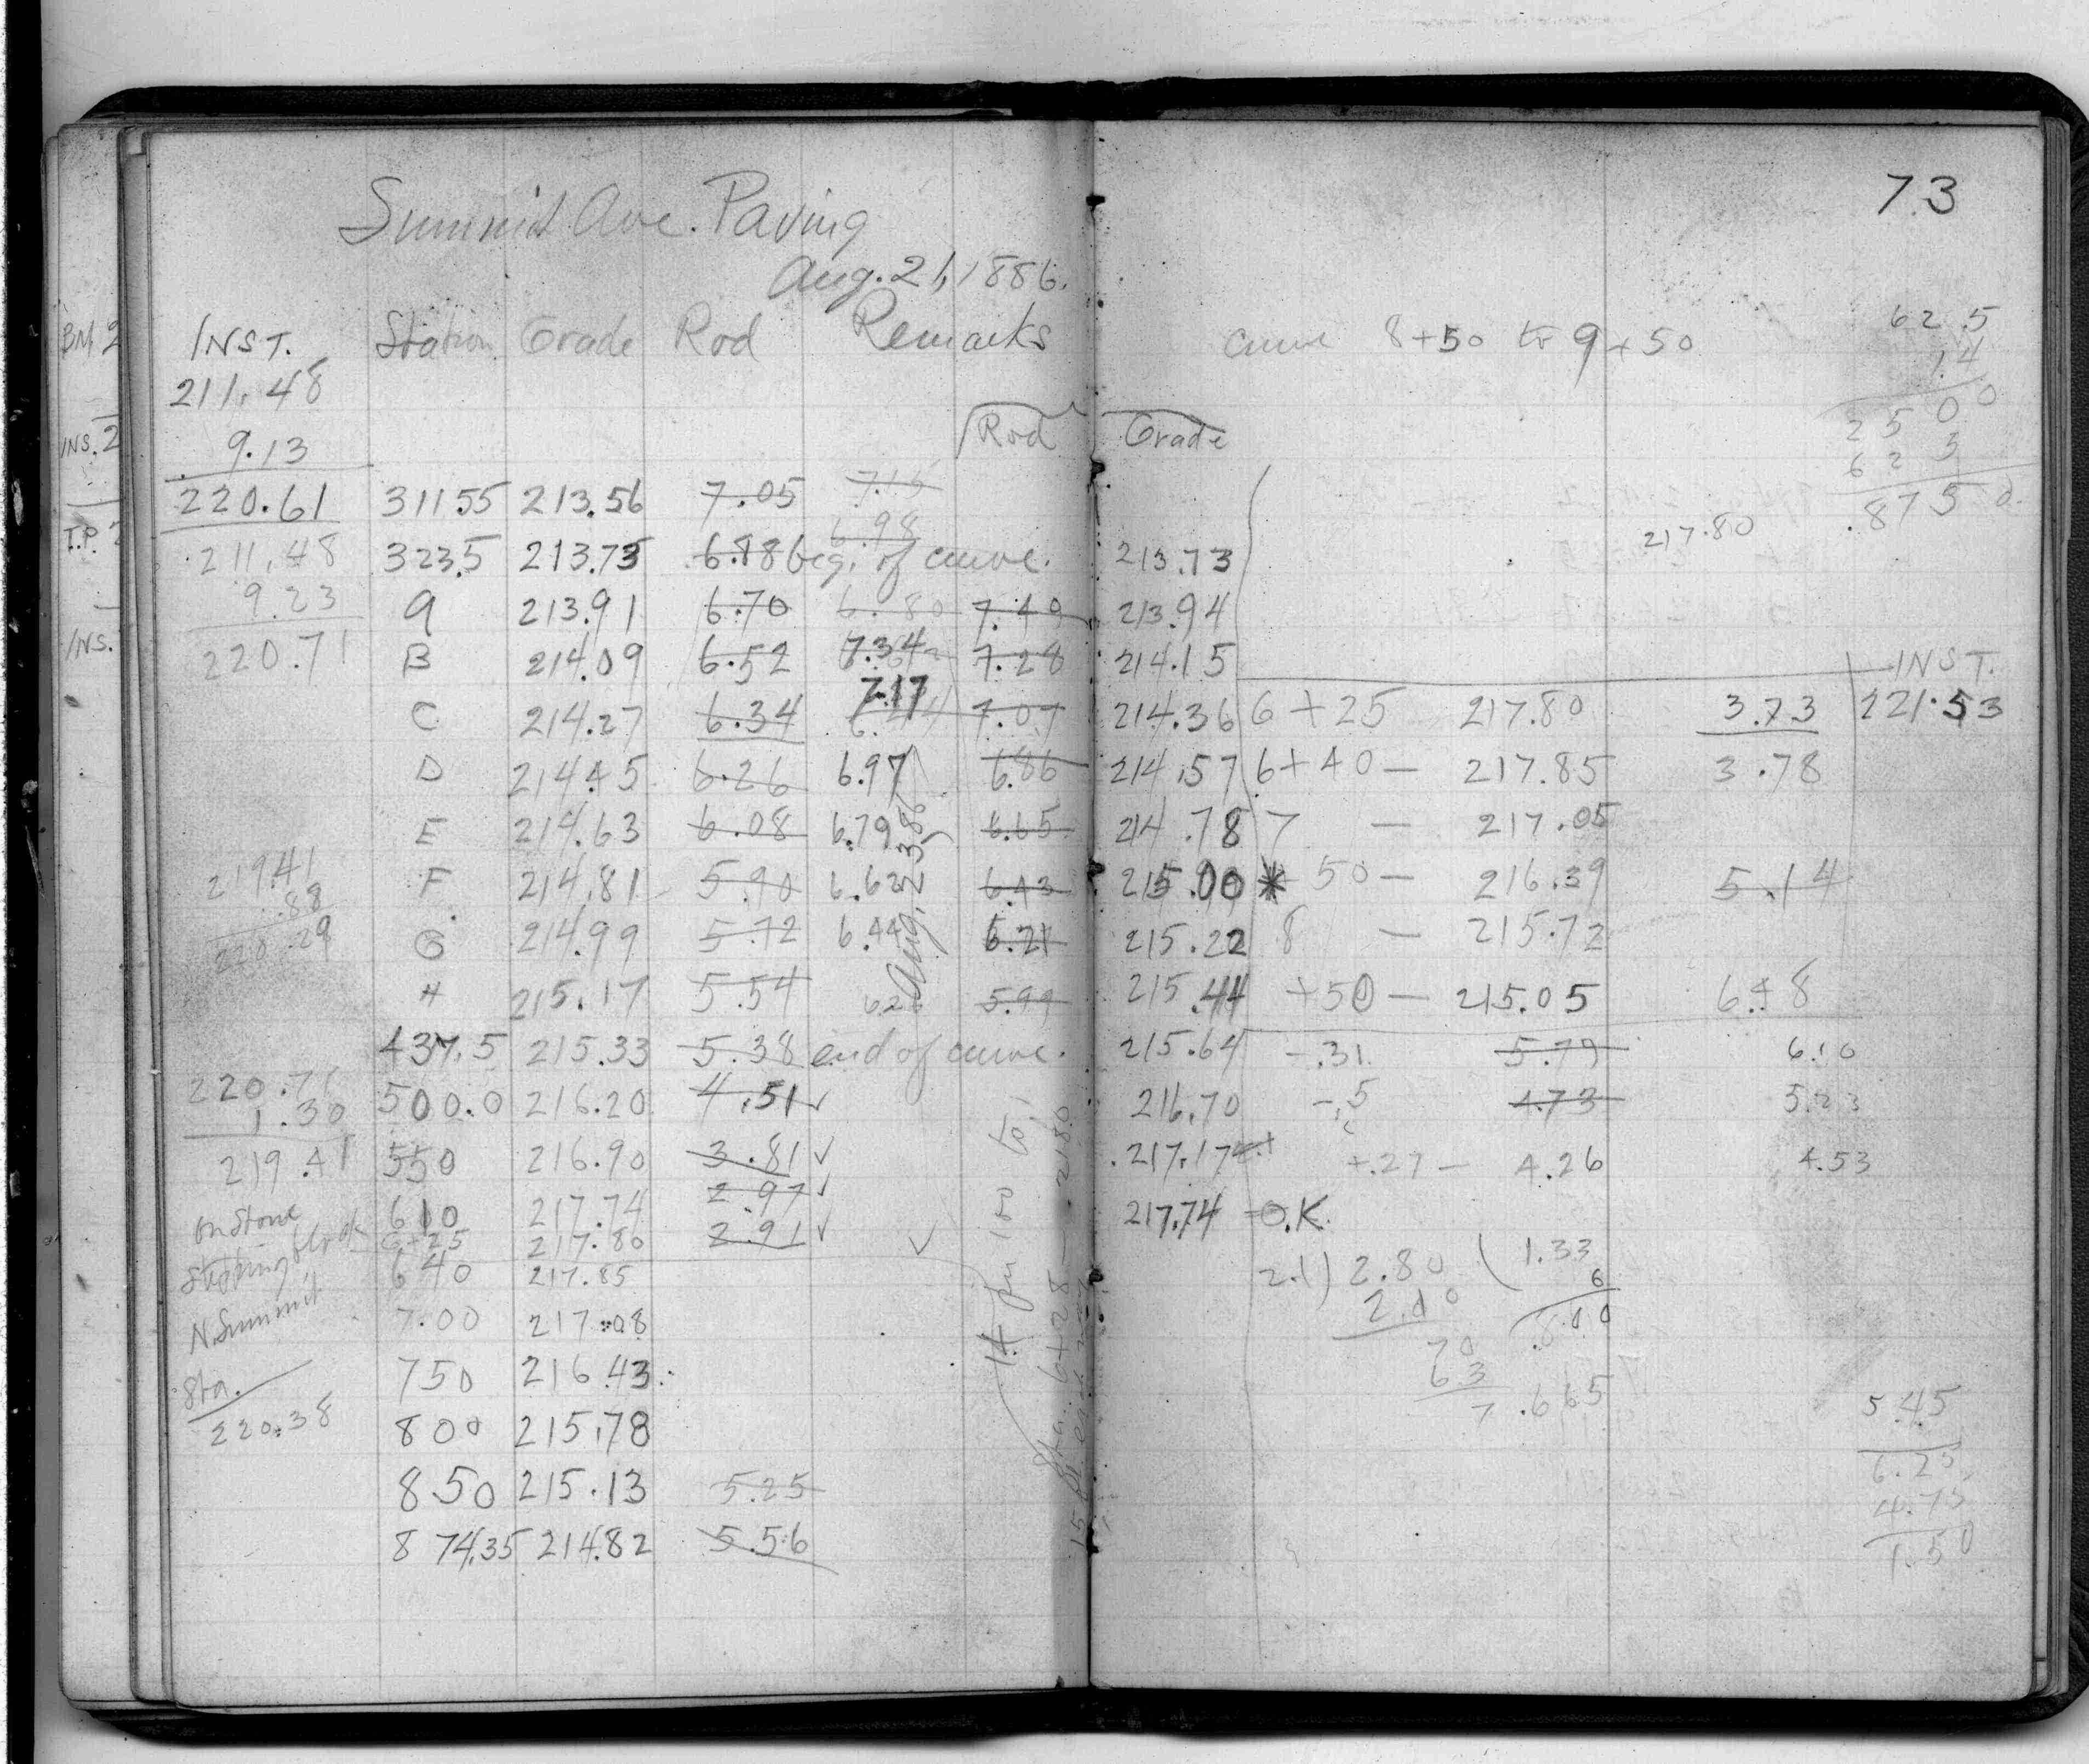 Summit Ave. Paving
Aug. 21, 1886.
73
INST. Station Grade Rod Remarks
curve 8+50 to 9+50
62.5
1.4
2500
625
.8750
211.48
9.13
Rod Grade
220.61 311.55 213.56 7.05 7.15
217.80
6.98
211.48 323.5 213.73 6.88 beg. of curve. 213.73
9.23 a 213.91 6.70 6.80 7.49 213.94
220.71 B 214.09 6.52 7.34 7.28 214.15
INST.
C 214.27 6.34 7.17 7.07 214.36 6+25 217.80 3.73 221.53
D 214.45 6.26 6.97 6.86 214.57 6+40 — 217.85 3.78
E 214.63 6.08 6.79 6.65 214.78 7 — 217.05
219.41 F 214.81 5.90 6.62 6.43 215.00 * 50 — 216.39 5.14
.88
220.29 G 214.99 5.72 6.44 6.21 215.22 8 — 215.72
Aug. 23, 86
H 215.17 5.54 6.26 5.99 215.44 +50 — 215.05 6.48
437.5 215.33 5.38 end of curve. 215.64 -.31 5.79 6.10
220.71 500.0 216.20 4.51 ✓ 216.70 -.5 4.73 5.23
1.30
219.41 550 216.90 3.81 ✓ 217.17 +.27 — 4.26 4.53
On Stone 610 217.74 2.97 ✓ 217.74 O.K.
6+25 217.80 2.91 ✓ ✓
Stepping Block 640 217.85
N. Summit 7.00 217.08
Sta. 750 216.43
220.38 800 215.78
850 215.13 5.25
874.35 214.82 5.56
1.4 per 100 to
Sta. 6+28 — 218.0
2.1) 2.80 ( 1.33
2.10 6
70
63
7 .665
5.45
6.25
4.75
1.50
BM 2
INS. 2
T.P.
INS.